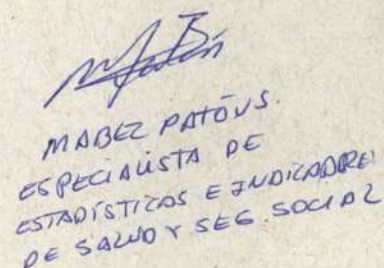 MABEL PATÓN S.
ESPECIALISTA DE
ESTADÍSTICAS E INDICADORE
DE SALUD Y SEG. SOCIAL